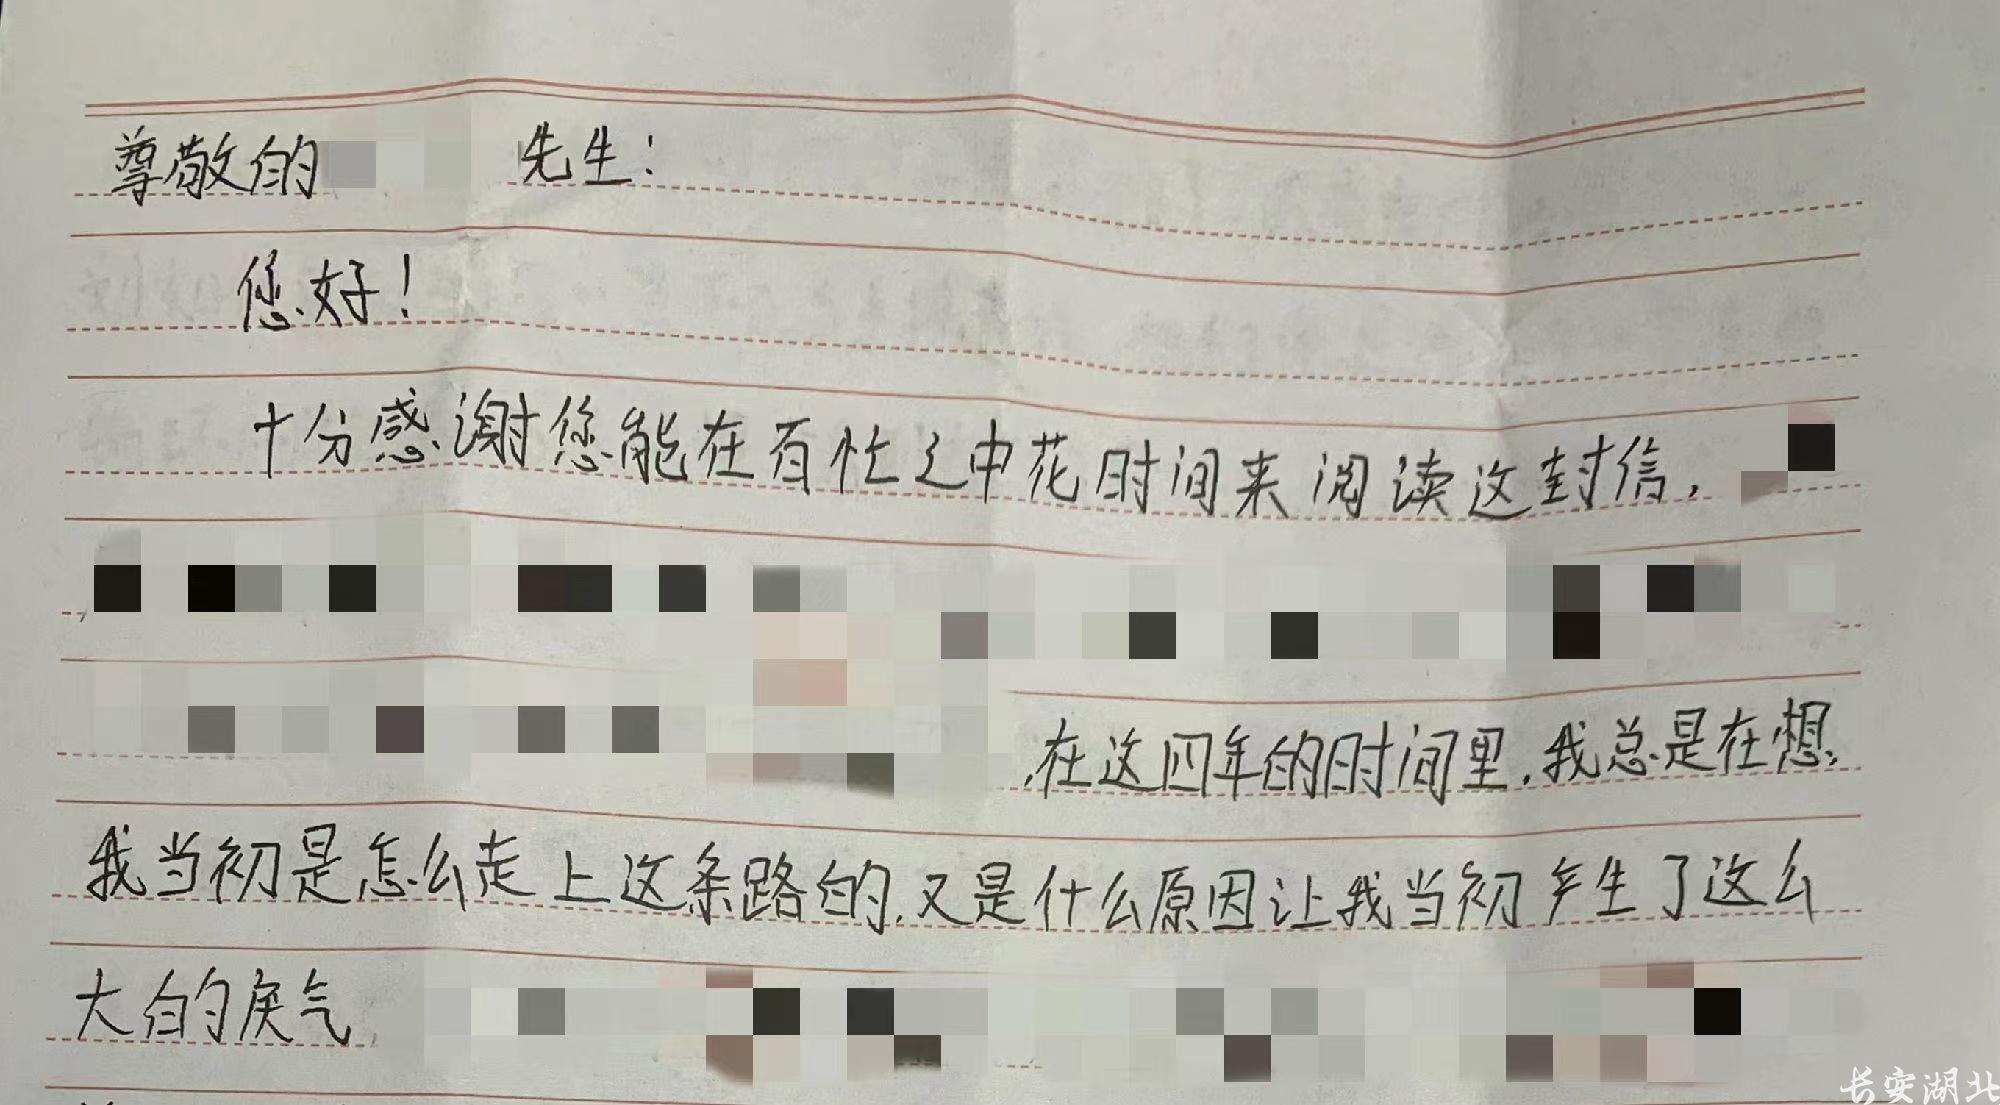 尊敬的 先生：
您好！
十分感谢您能在百忙之中花时间来阅读这封信，
在这四年的时间里，我总是在想，
我当初是怎么走上这条路的，又是什么原因让我当初产生了这么
大的戾气
长安湖北